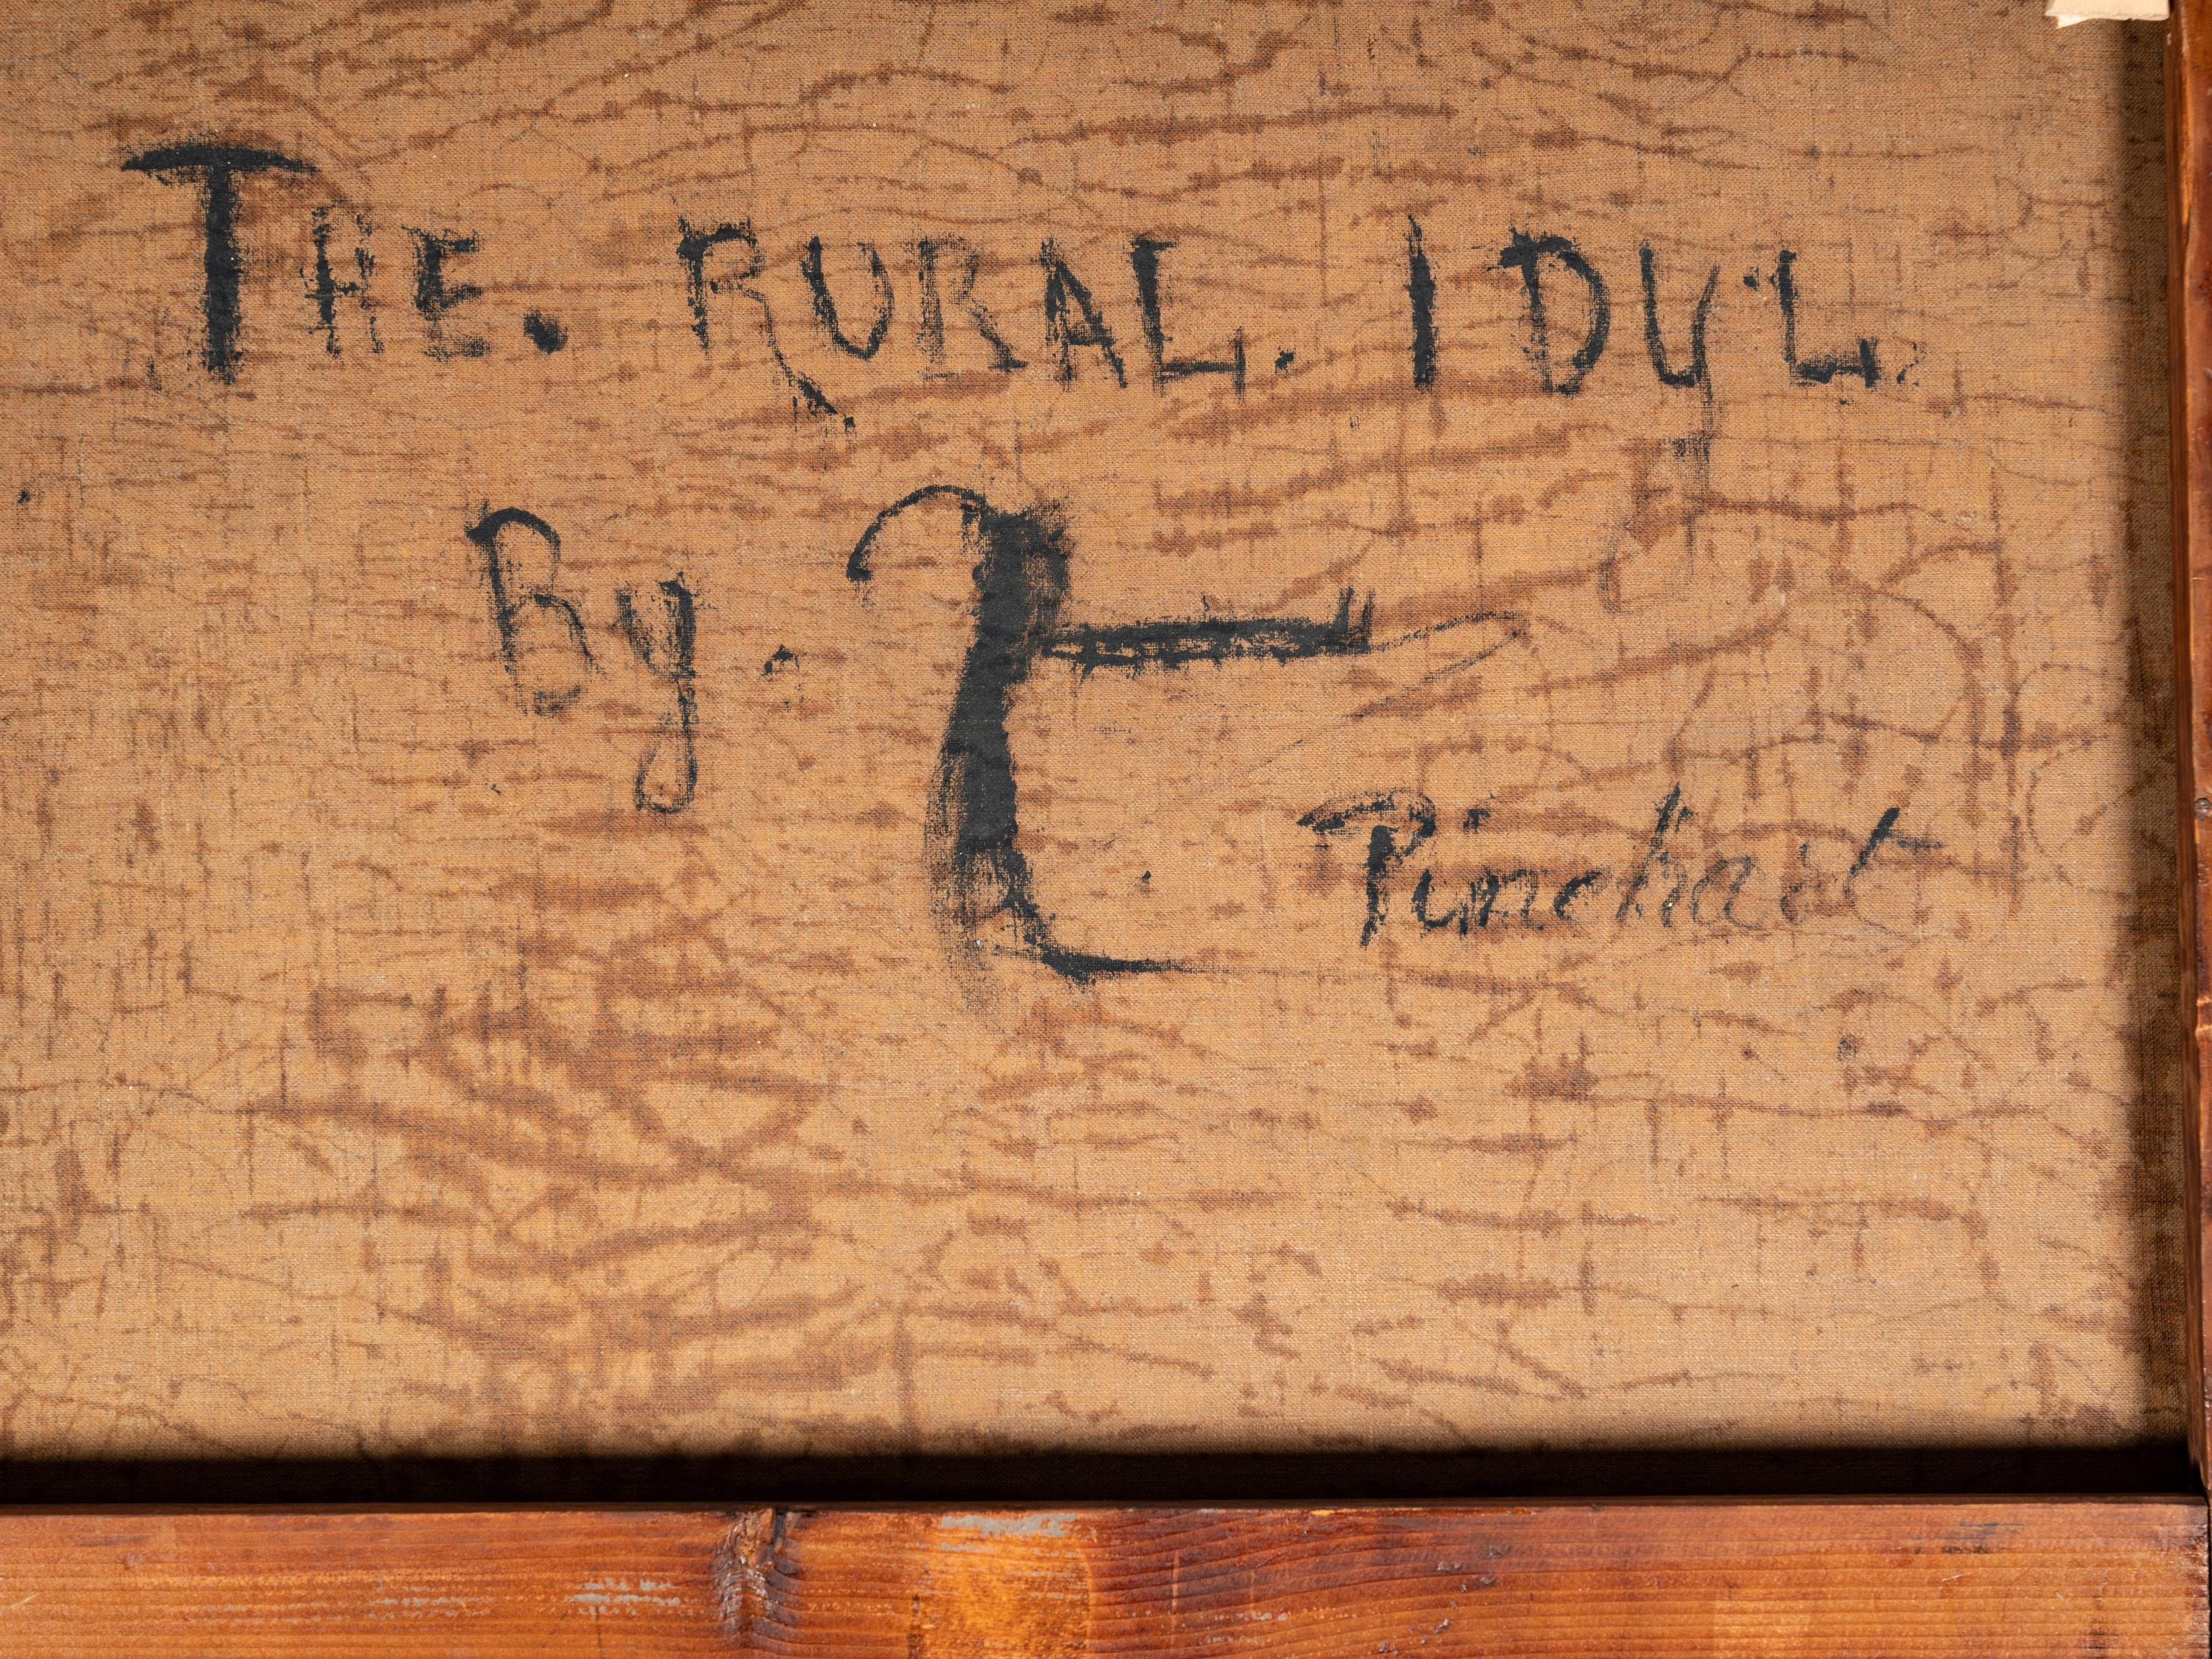 THE. RURAL. IDYL.
By.
Pinchart